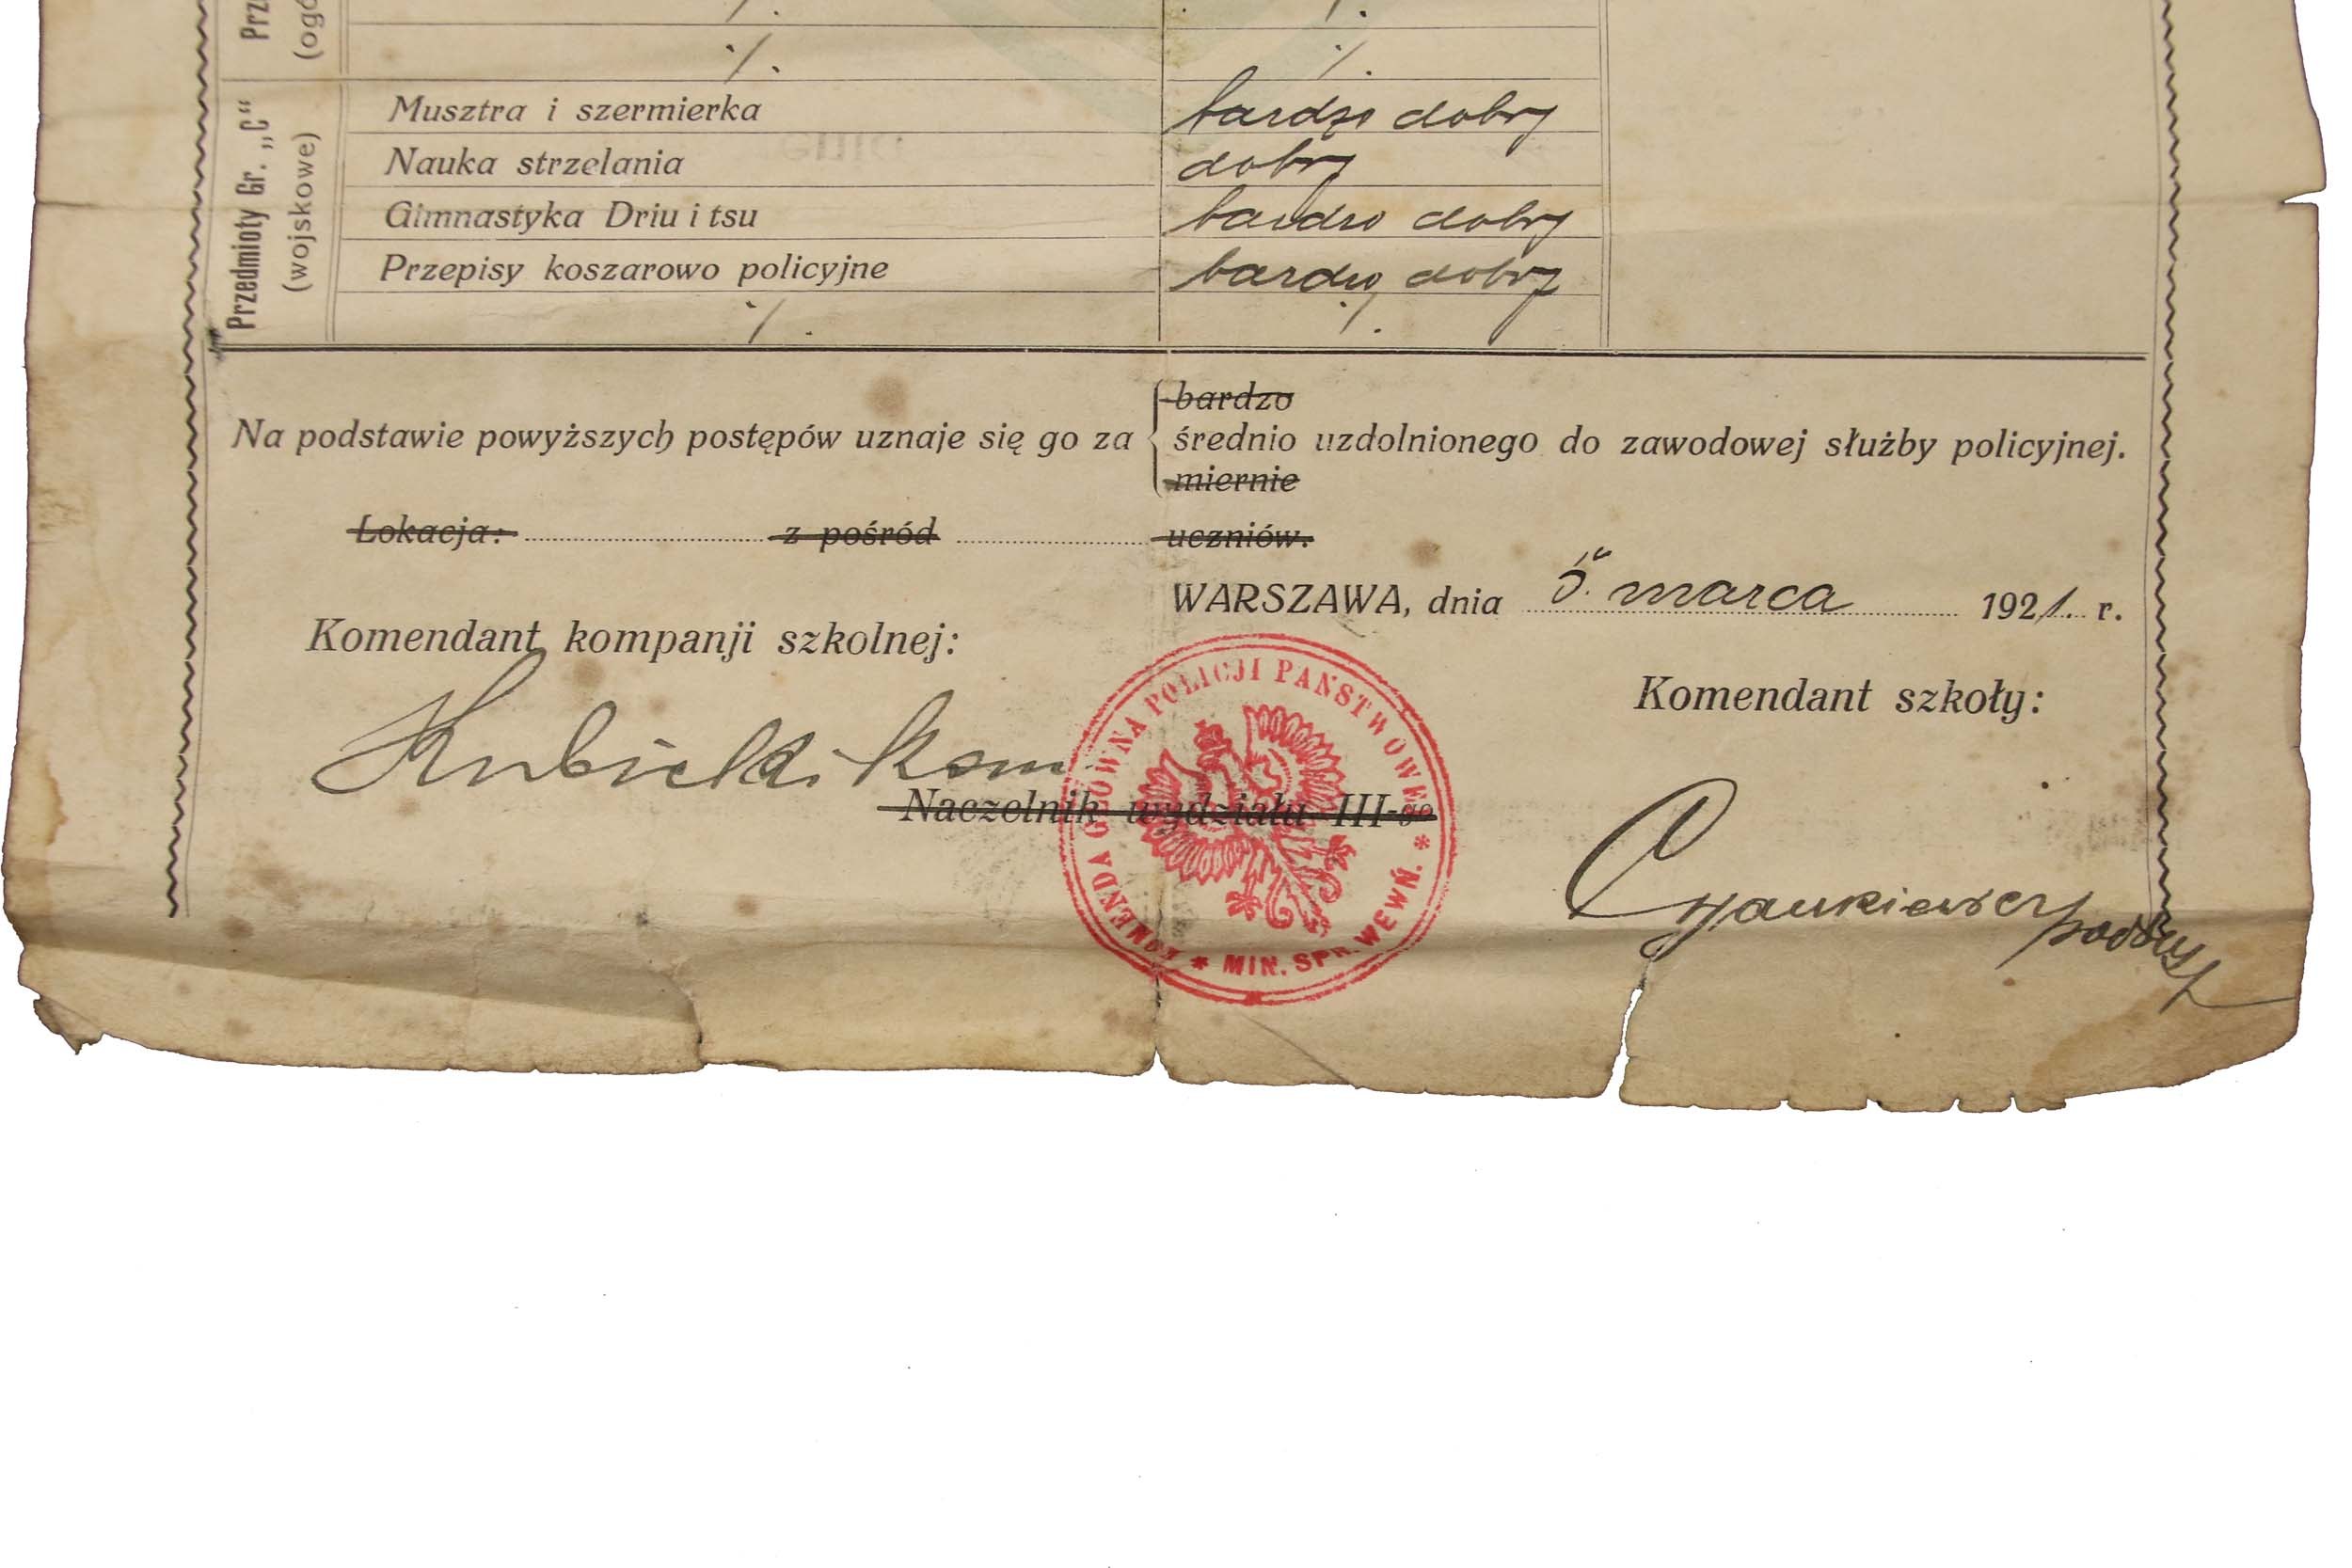 Prz
(ogó
./.
./.
./.
./.
Przedmioty Gr. „C“
(wojskowe)
Musztra i szermierka bardzo dobry
Nauka strzelania dobry
Gimnastyka Driu i tsu bardzo dobry
Przepisy koszarowo policyjne bardzo dobry
./. ./.
bardzo
Na podstawie powyższych postępów uznaje się go za średnio uzdolnionego do zawodowej służby policyjnej.
miernie
Lokacja: z pośród uczniów.
WARSZAWA, dnia 5. marca 1921. r.
Komendant kompanji szkolnej:
Komendant szkoły:
Kubicki kom
Naczelnik wydziału III-go
KOMENDA GŁÓWNA POLICJI PAŃSTWOWEJ
* MIN. SPR. WEWŃ. *